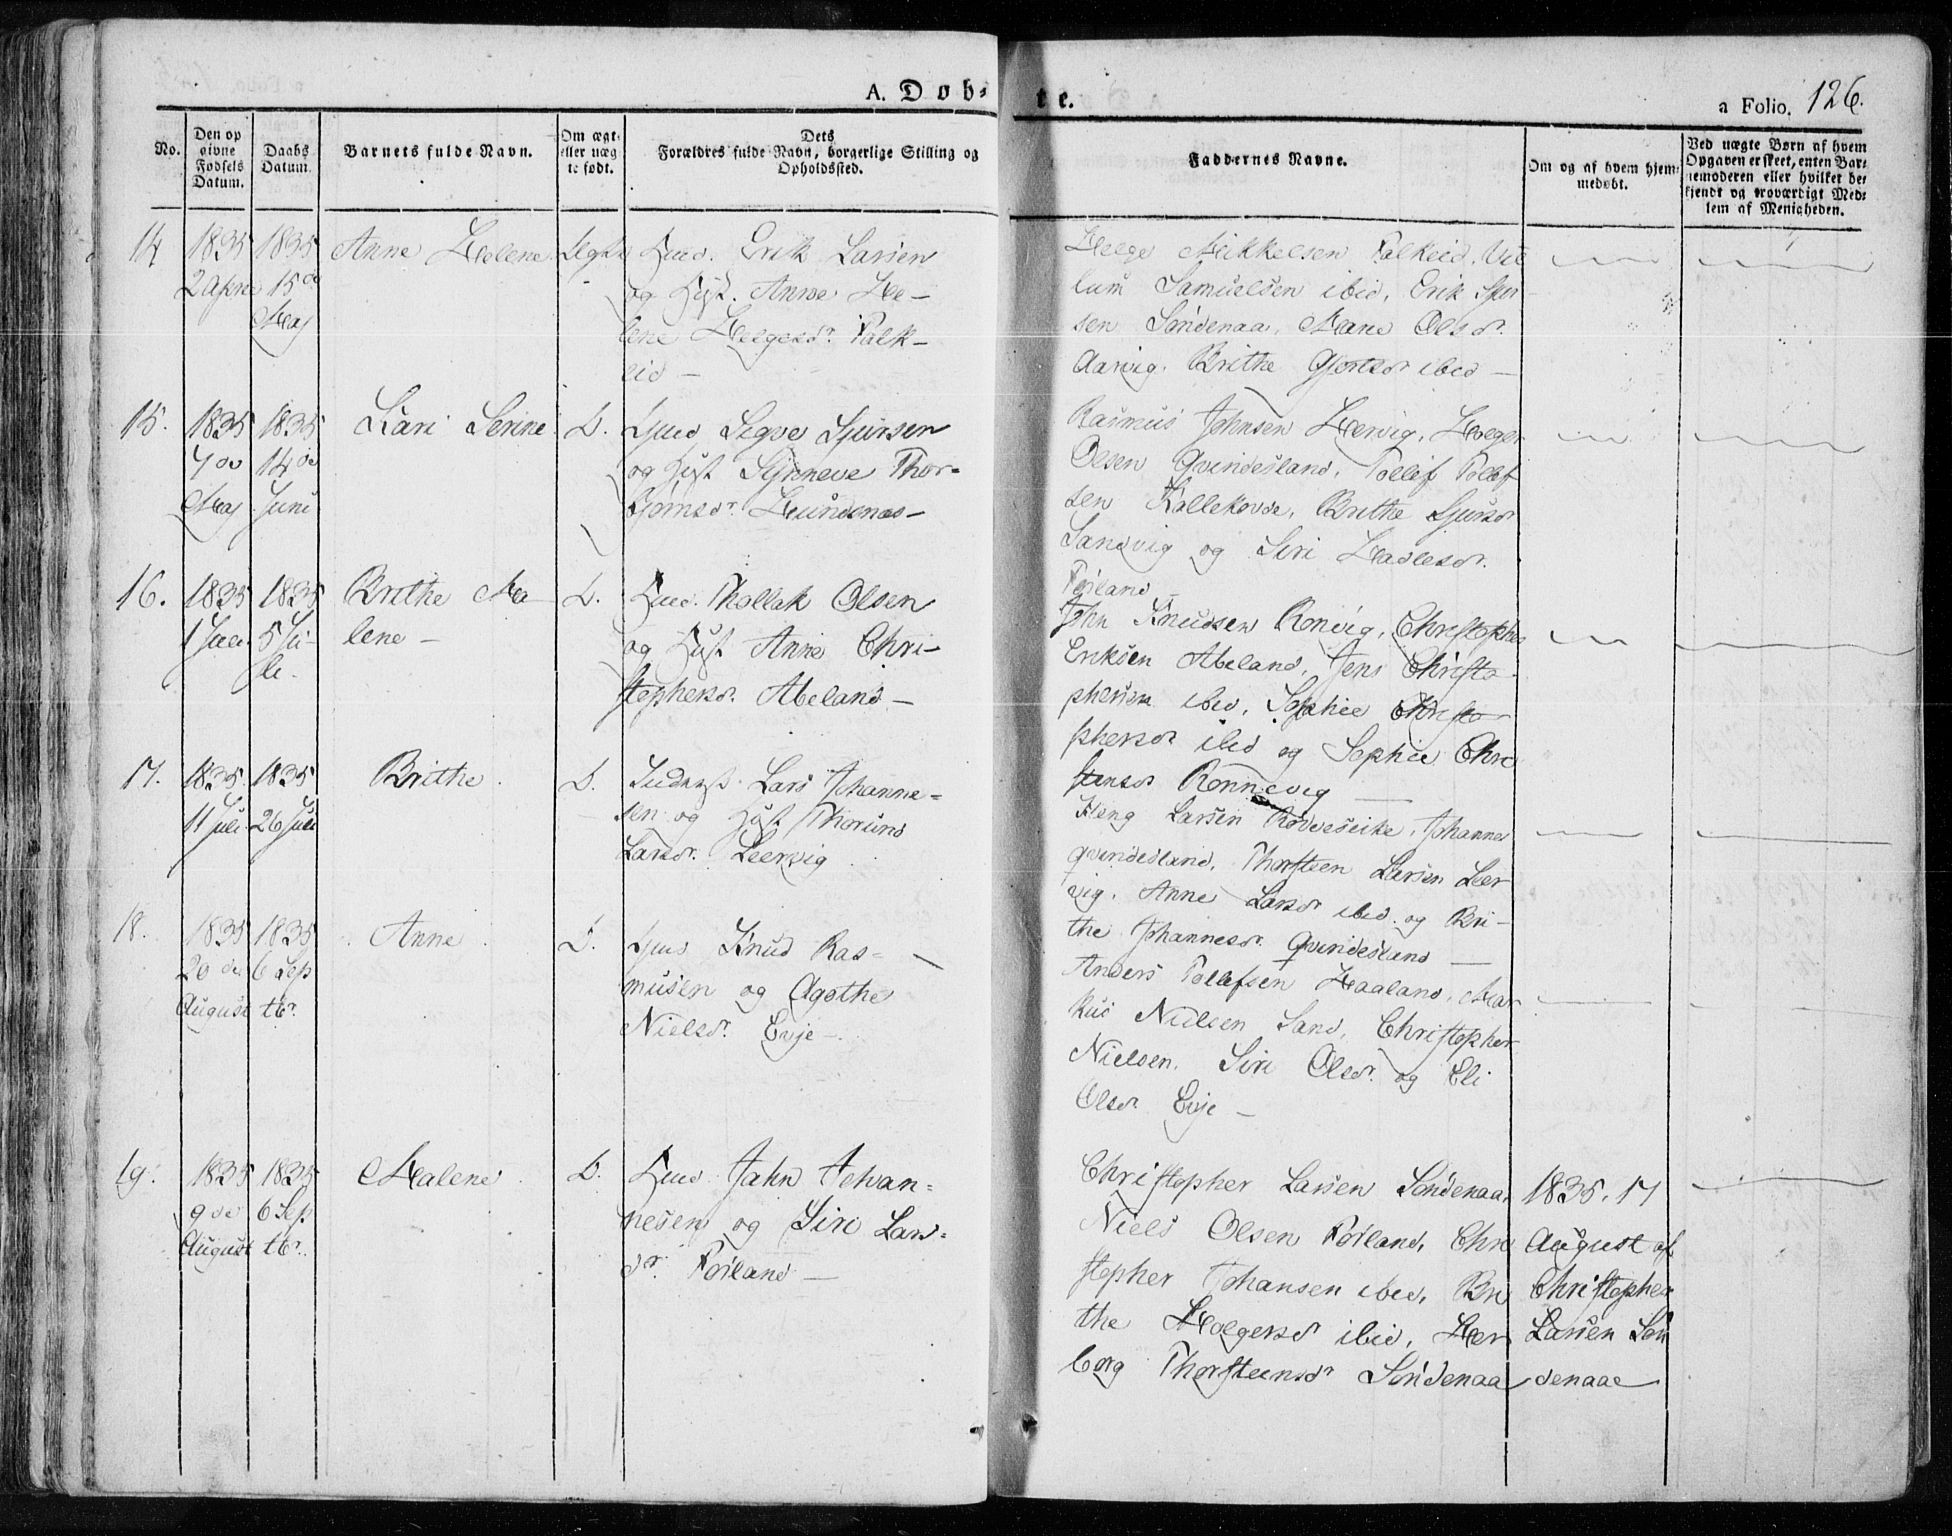 A. Døb-
te.
a Folio. 126.
No.
Den opgivne Fødsels Datum.
Daabs Datum.
Barnets fulde Navn.
Om ægte eller uægte født.
Dets Forældres fulde Navn, borgerlige Stilling og Opholdssted.
Faddernes Navne.
Om og af hvem hjemmedøbt.
Ved uægte Børn af hvem Opgaven er skeet, enten Barnemoderen eller hvilket bekjendt og troværdigt Medlem af Menigheden.
14
1835
2 April
1835
15de
May
Anne Helene
Ægte
Huusm. Erik Larsen
og Hust. Anne He-
lene Helgesdr. Falk-
eid -
Helge Mikkelsen Falkeid, Vil
lum Samuelsen ibid, Erik Sjur
sen Søndenaa, Olsdr.
Aarvig. Brithe ibid -
15.
1835
7de
May
1835
14de
Juni
Kari Serine
D.
Sjur
og Hust Synneve Thor-
bjørnsdr. Hundsnæs -
Rasmus Johnsen Hervig, Holger
Olsen Qvindesland, Tollef Tollef
sen Kallekodde, Brithe Sjursdr
Sandvig og Siri Hadlesdr.
Foiland
16.
1835
1 Juli
1835
5 Ju-
li.
Brithe Ma
lene -
D.
Thollak Olsen
og Hust Anne Chri-
stophersdr. Abeland -
John Knudsen Ronvig, Christopher
Eriksen Abeland, Jens Christo
phersen ibid, Sophie Christo
phersdr ibid og Sophie Chri
stensdr Ronnevig -
17.
1835
11 Juli
1835
26 Juli
Brithe
D.
Lars Johanne-
sen og Hust Thorund
Larsdr. Leervig
Larsen Johannes
Qvindesland, Thorsteen Larsen Leer
vig. Anne Larsdr ibid og Bri-
the Johannesdr. Qvindesland -
18.
1835
20de
August
1835
6 Sep
tbr.
Anne
D.
Knud Ras-
musen og Agothe
Nielsdr. Evje -
Anders Tollefsen Haaland, Mar
kus Nielsen Sand, Christopher
Nielsen, Siri Olsdr. og Eli
Olsdr. Evje -
19.
1835
9de
August
1835
6 Sep
tbr.
Malene
D.
Jahn Johan-
nesen og Siri Lars-
dr. Foiland -
Christopher Larsen Søndenaa,
Niels Olsen Foiland, Chri
stopher Johansen ibid, Bri
the Holgersdr ibid, Her
borg Thorsteensdr Søndenaa
1835. 17
August af
Christopher
Larsen Søn
denaae